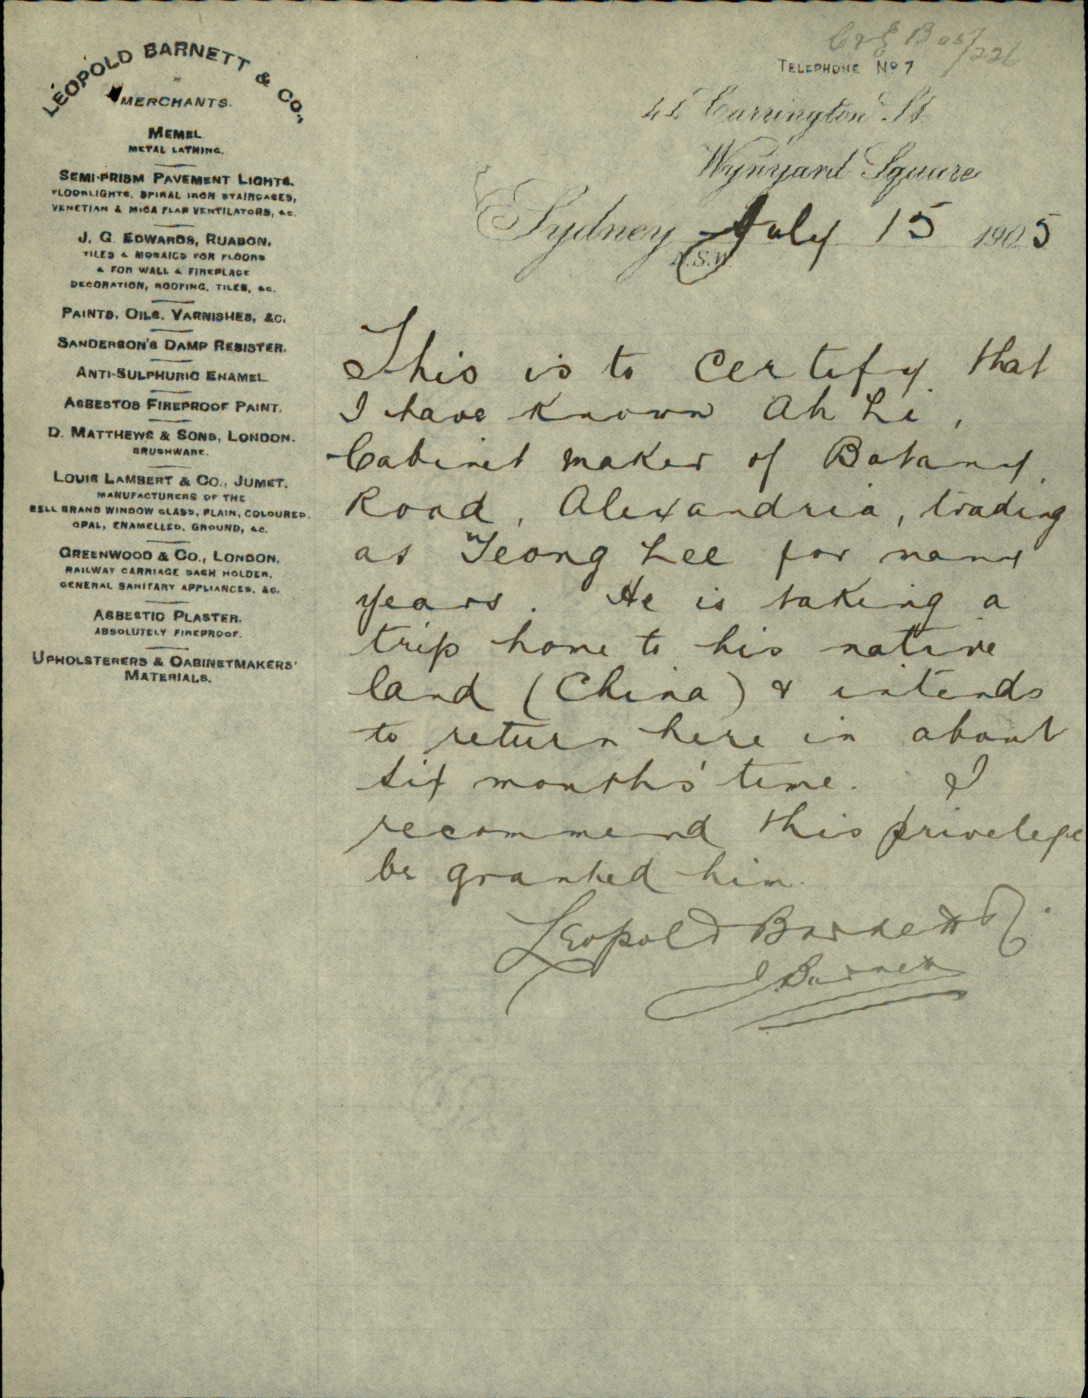 LEOPOLD BARNETT & CO.,
MERCHANTS.
MEMEL
METAL LATHING.
SEMI-PRISM PAVEMENT LIGHTS.
FLOORLIGHTS, SPIRAL IRON STAIRCASES,
VENETIAN & MICA FLAP VENTILATORS, &c.
J. C. EDWARDS, RUABON.
TILES & MOSAICS FOR FLOORS
& FOR WALL & FIREPLACE
DECORATION, ROOFING, TILES, &c.
PAINTS, OILS, VARNISHES, &c.
SANDERSON'S DAMP RESISTER.
ANTI-SULPHURIC ENAMEL
ASBESTOS FIREPROOF PAINT.
D. MATTHEWS & SONS, LONDON.
BRUSHWARE.
LOUIS LAMBERT & CO., JUMET.
MANUFACTURERS OF THE
BELL BRAND WINDOW GLASS, PLAIN, COLOURED,
OPAL, ENAMELLED, GROUND, &c.
GREENWOOD & CO., LONDON.
RAILWAY CARRIAGE SASH HOLDER,
GENERAL SANITARY APPLIANCES, &c.
ASBESTIC PLASTER.
ABSOLUTELY FIREPROOF.
UPHOLSTERERS & CABINETMAKERS'
MATERIALS.
TELEPHONE No 7
Carrington St
Wynyard Square
Sydney July 15 1905
N.S.W.
This is to certify that
I have known Ah Li,
Cabinet maker of Botany
Road, Alexandria, trading
as Yeong Lee for many
years. He is taking a
trip home to his native
land (China) & intends
to return here in about
six months' time. I
recommend this privelege
be granted him.
Leopold Barnett & Co.
Barnett